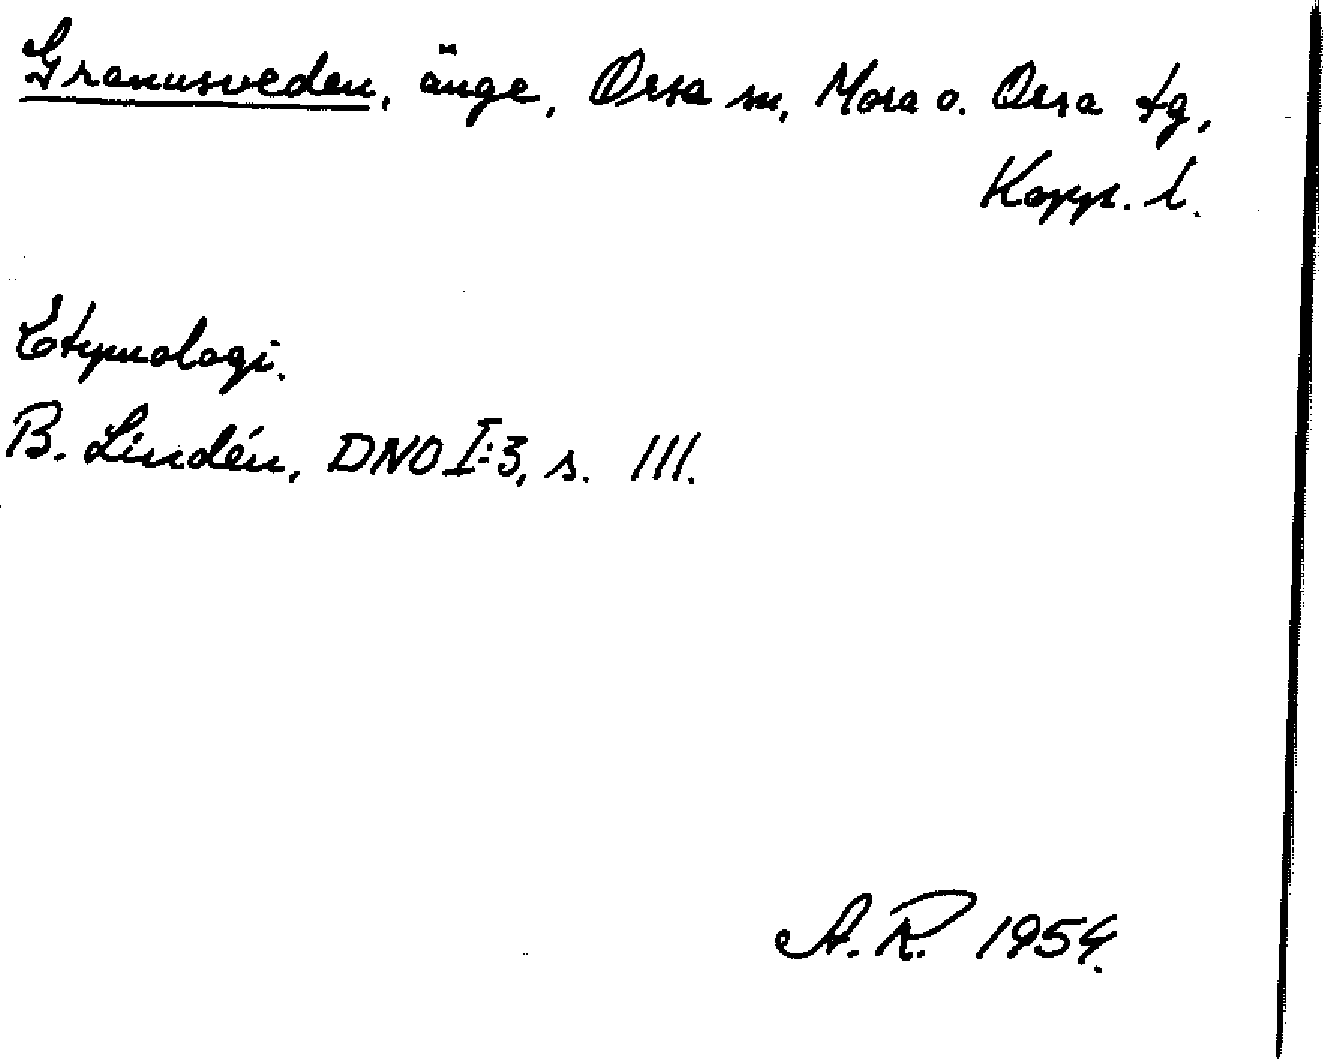 Granusveden, änge, Orsa sn, Mora o. Orsa tg,
Kopp. l.
Etymologi.
B. Lindén, DNO I:3, s. 111.
A. R. 1954.